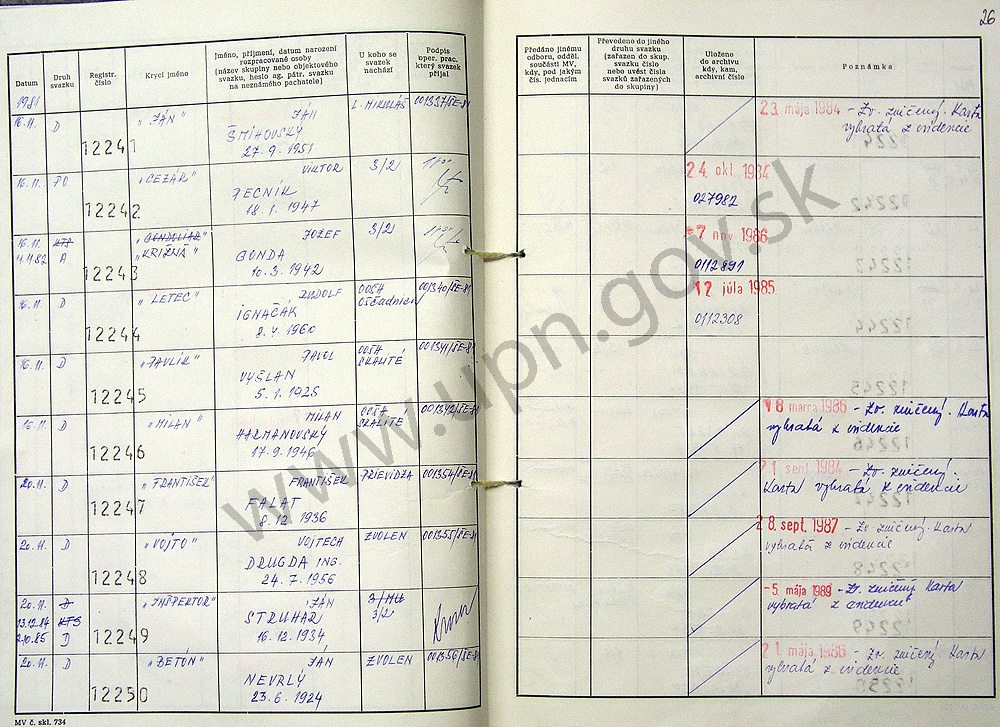 26
Datum
Druh svazku
Registr. číslo
Krycí jméno
Jméno, příjmení, datum narození
rozpracované osoby
(název skupiny nebo objektového
svazku, heslo ag. pátr. svazku
na neznámého pachatele)
U koho se
svazek
nachází
Podpis
oper. prac.
který svazek
přijal
Předáno jinému
odboru, odděl.
součásti MV,
kdy, pod jakým
čís. jednacím
Převedeno do jiného
druhu svazku
(zařazen do skup.
svazku číslo
nebo uvést čísla
svazků zařazených
do skupiny)
Uloženo
do archivu
kdy, kam,
archivní číslo
Poznámka
1981
16.11. D 12241 "JÁN" JÁN
ŠMIHOVSKÝ
27.9.1951
L. MIKULÁŠ 001337/ŠE-81
23. mája 1984 - Zv. zničený. Karta
vybratá z evidencie
16.11. PO 12242 "CEZÁR" VIKTOR
PECNÍK
18.1.1947
3/2
24. okt. 1984
027982
16.11. KTS "GONDOLIAR" JOZEF
4.4.82 A 12243 "KRIŽNÁ"
GONDA
10.3.1942
3/2
7 nov 1986
0112891
16.11. D 12244 "LETEC" RUDOLF
IGNAČÁK
2.4.1960
OOŠH
OŠČADNICA
001340/ŠE-81
12 júla 1985
0112308
16.11. D 12245 "PAVLÍK" PAVOL
VYŠLAN
5.1.1925
OOŠH
SKALITÉ
001341/ŠE-81
16.11. D 12246 "MILAN" MILAN
HARMANOVSKÝ
17.9.1946
OOŠH
SKALITÉ
001342/ŠE-81
18 marca 1986 - Zv. zničený. Karta
vybratá z evidencie
20.11. D 12247 "FRANTIŠEK" FRANTIŠEK
FALAT
8.12.1936
PRIEVIDZA 001354/ŠE-81
21. sept. 1984 - Zv. zničený.
Karta vybratá z evidencie
20.11. D 12248 "VOJTO" VOJTECH
DRUGDA ING.
24.7.1956
ZVOLEN 001355/ŠE-81
28. sept. 1987 - Zv. zničený. Karta
vybratá z evidencie
20.11. D "INŠPEKTOR" JÁN
13.12.84 KTS
2.10.85 D 12249
STRUHÁR
16.12.1934
3/2
-5. mája 1989 - Zv. zničený Karta
vybratá z evidencie
20.11. D 12250 "BETÓN" JÁN
NEVRLÝ
23.6.1924
ZVOLEN 001356/ŠE-81
21. mája 1986 - Zv. zničený. Karta
vybratá z evidencie
MV č. skl. 734
www.upn.gov.sk